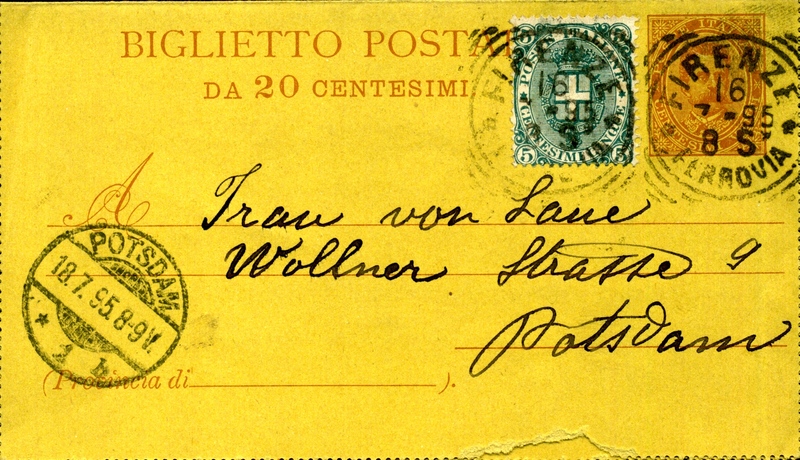 BIGLIETTO POSTA
DA 20 CENTESIMI
5 5
POSTE ITALIANE
CENTESIMI CINQUE
5 5
FIRENZE
16
7-95
8 S
FERROVIA
A Frau von Laue
Wollner Strasse 9
Potsdam
POTSDAM
18.7.95.8-9V.
* 1 b.
(Provincia di ).